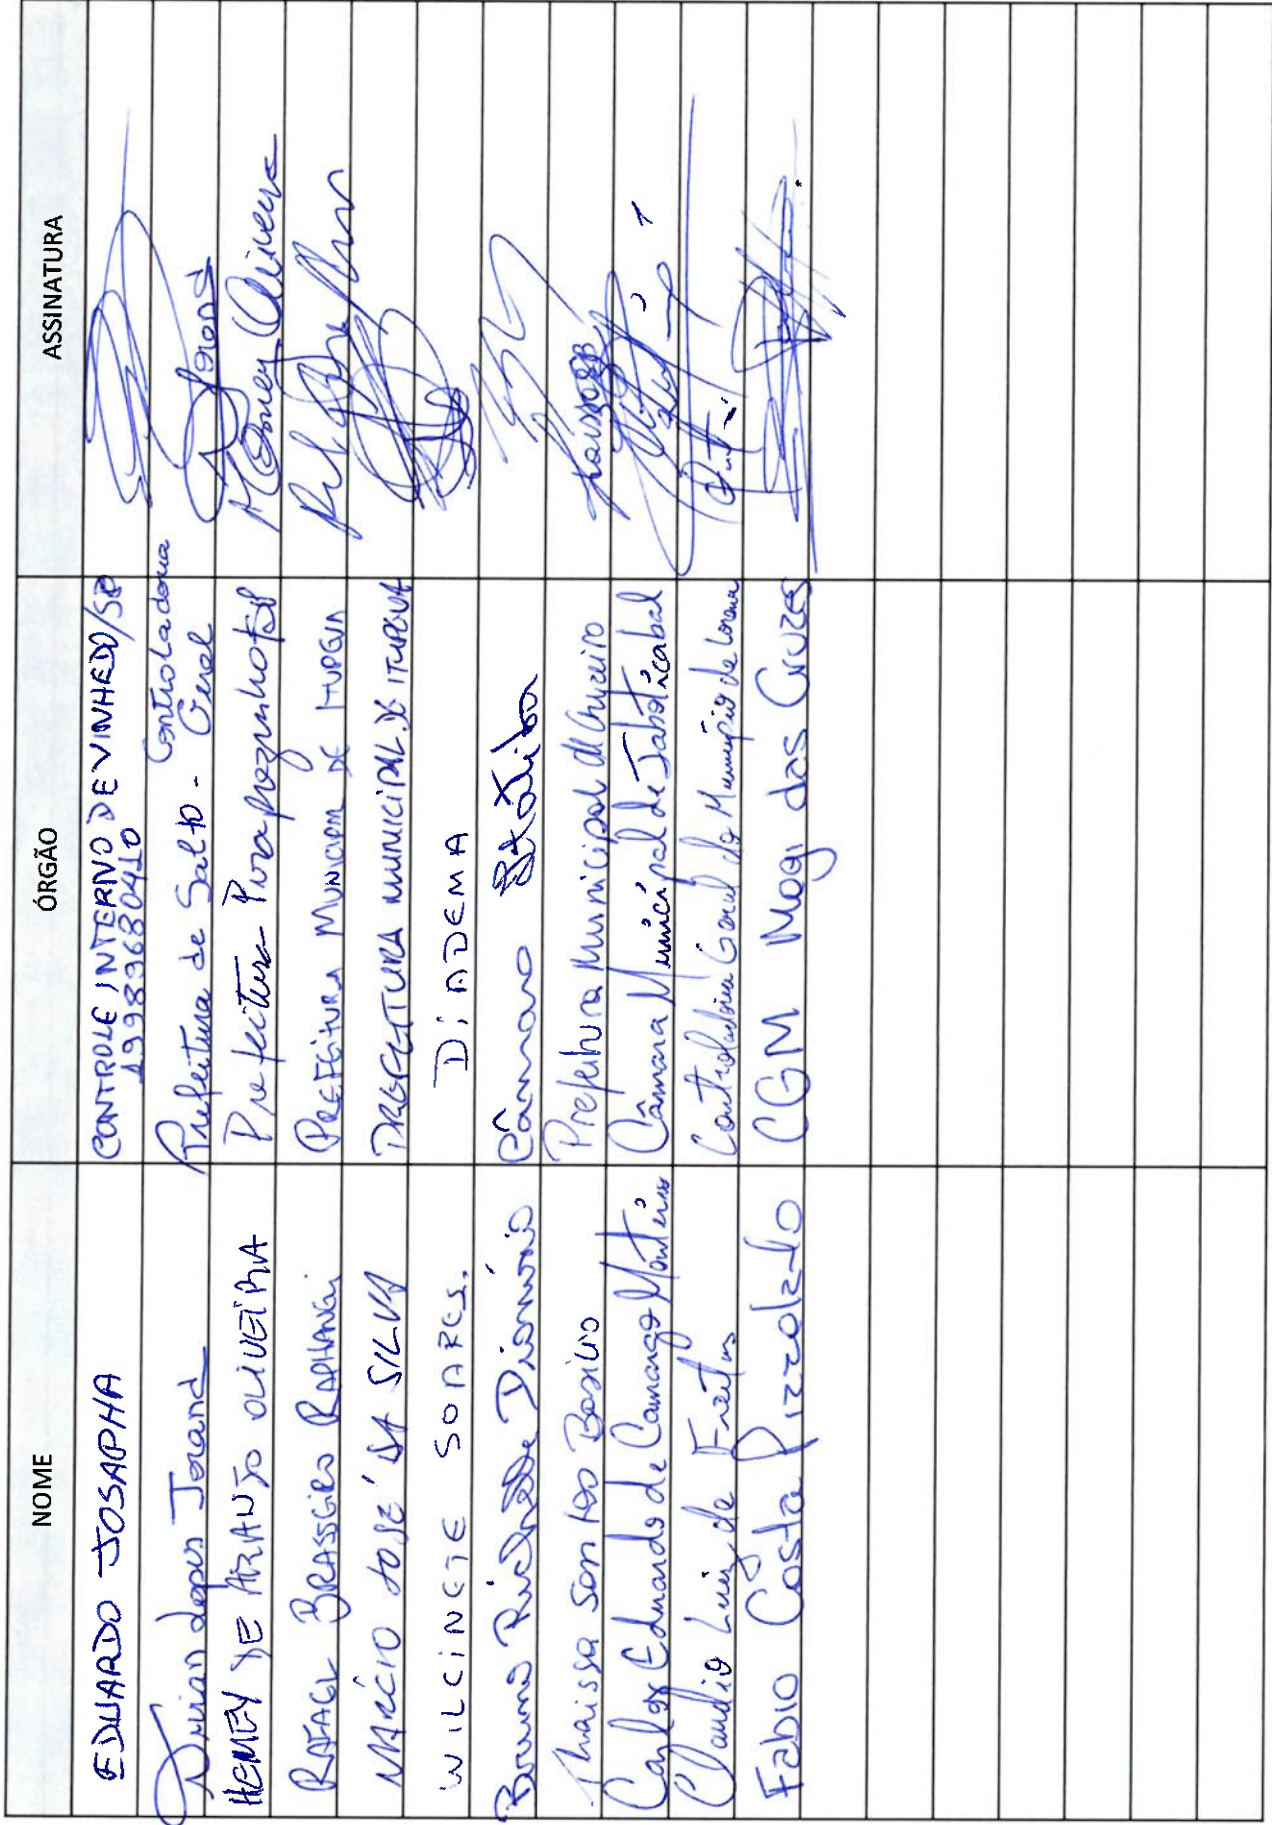 NOME ÓRGÃO ASSINATURA
EDUARDO JOSAPHA CONTROLE INTERNO DE VINHEDO/SP
19983680410
Lopes Prefeitura de Salto - Controladoria Geral
HEMEY DE ARAUJO OLIVEIRA Prefeitura Pirapozinho/SP Hemey Oliveira
RAFAEL BRASSEIRO PREFEITURA MUNICIPAL DE ITUPEVA
MÁRCIO JOSÉ DA SILVA PREFEITURA MUNICIPAL DE ITUPEVA
WILCINETE SOARES. DIADEMA
Bruno Dionisio Câmara
Thaissa Santos Basilio Prefeitura Municipal de Cruzeiro
Carlos Eduardo de Camargo Monteiro Câmara Municipal de Jaboticabal
Claudio Luiz de Freitas Controladoria Geral do Município de Lorena
Fabio Costa Pizzolato CGM Mogi das Cruzes